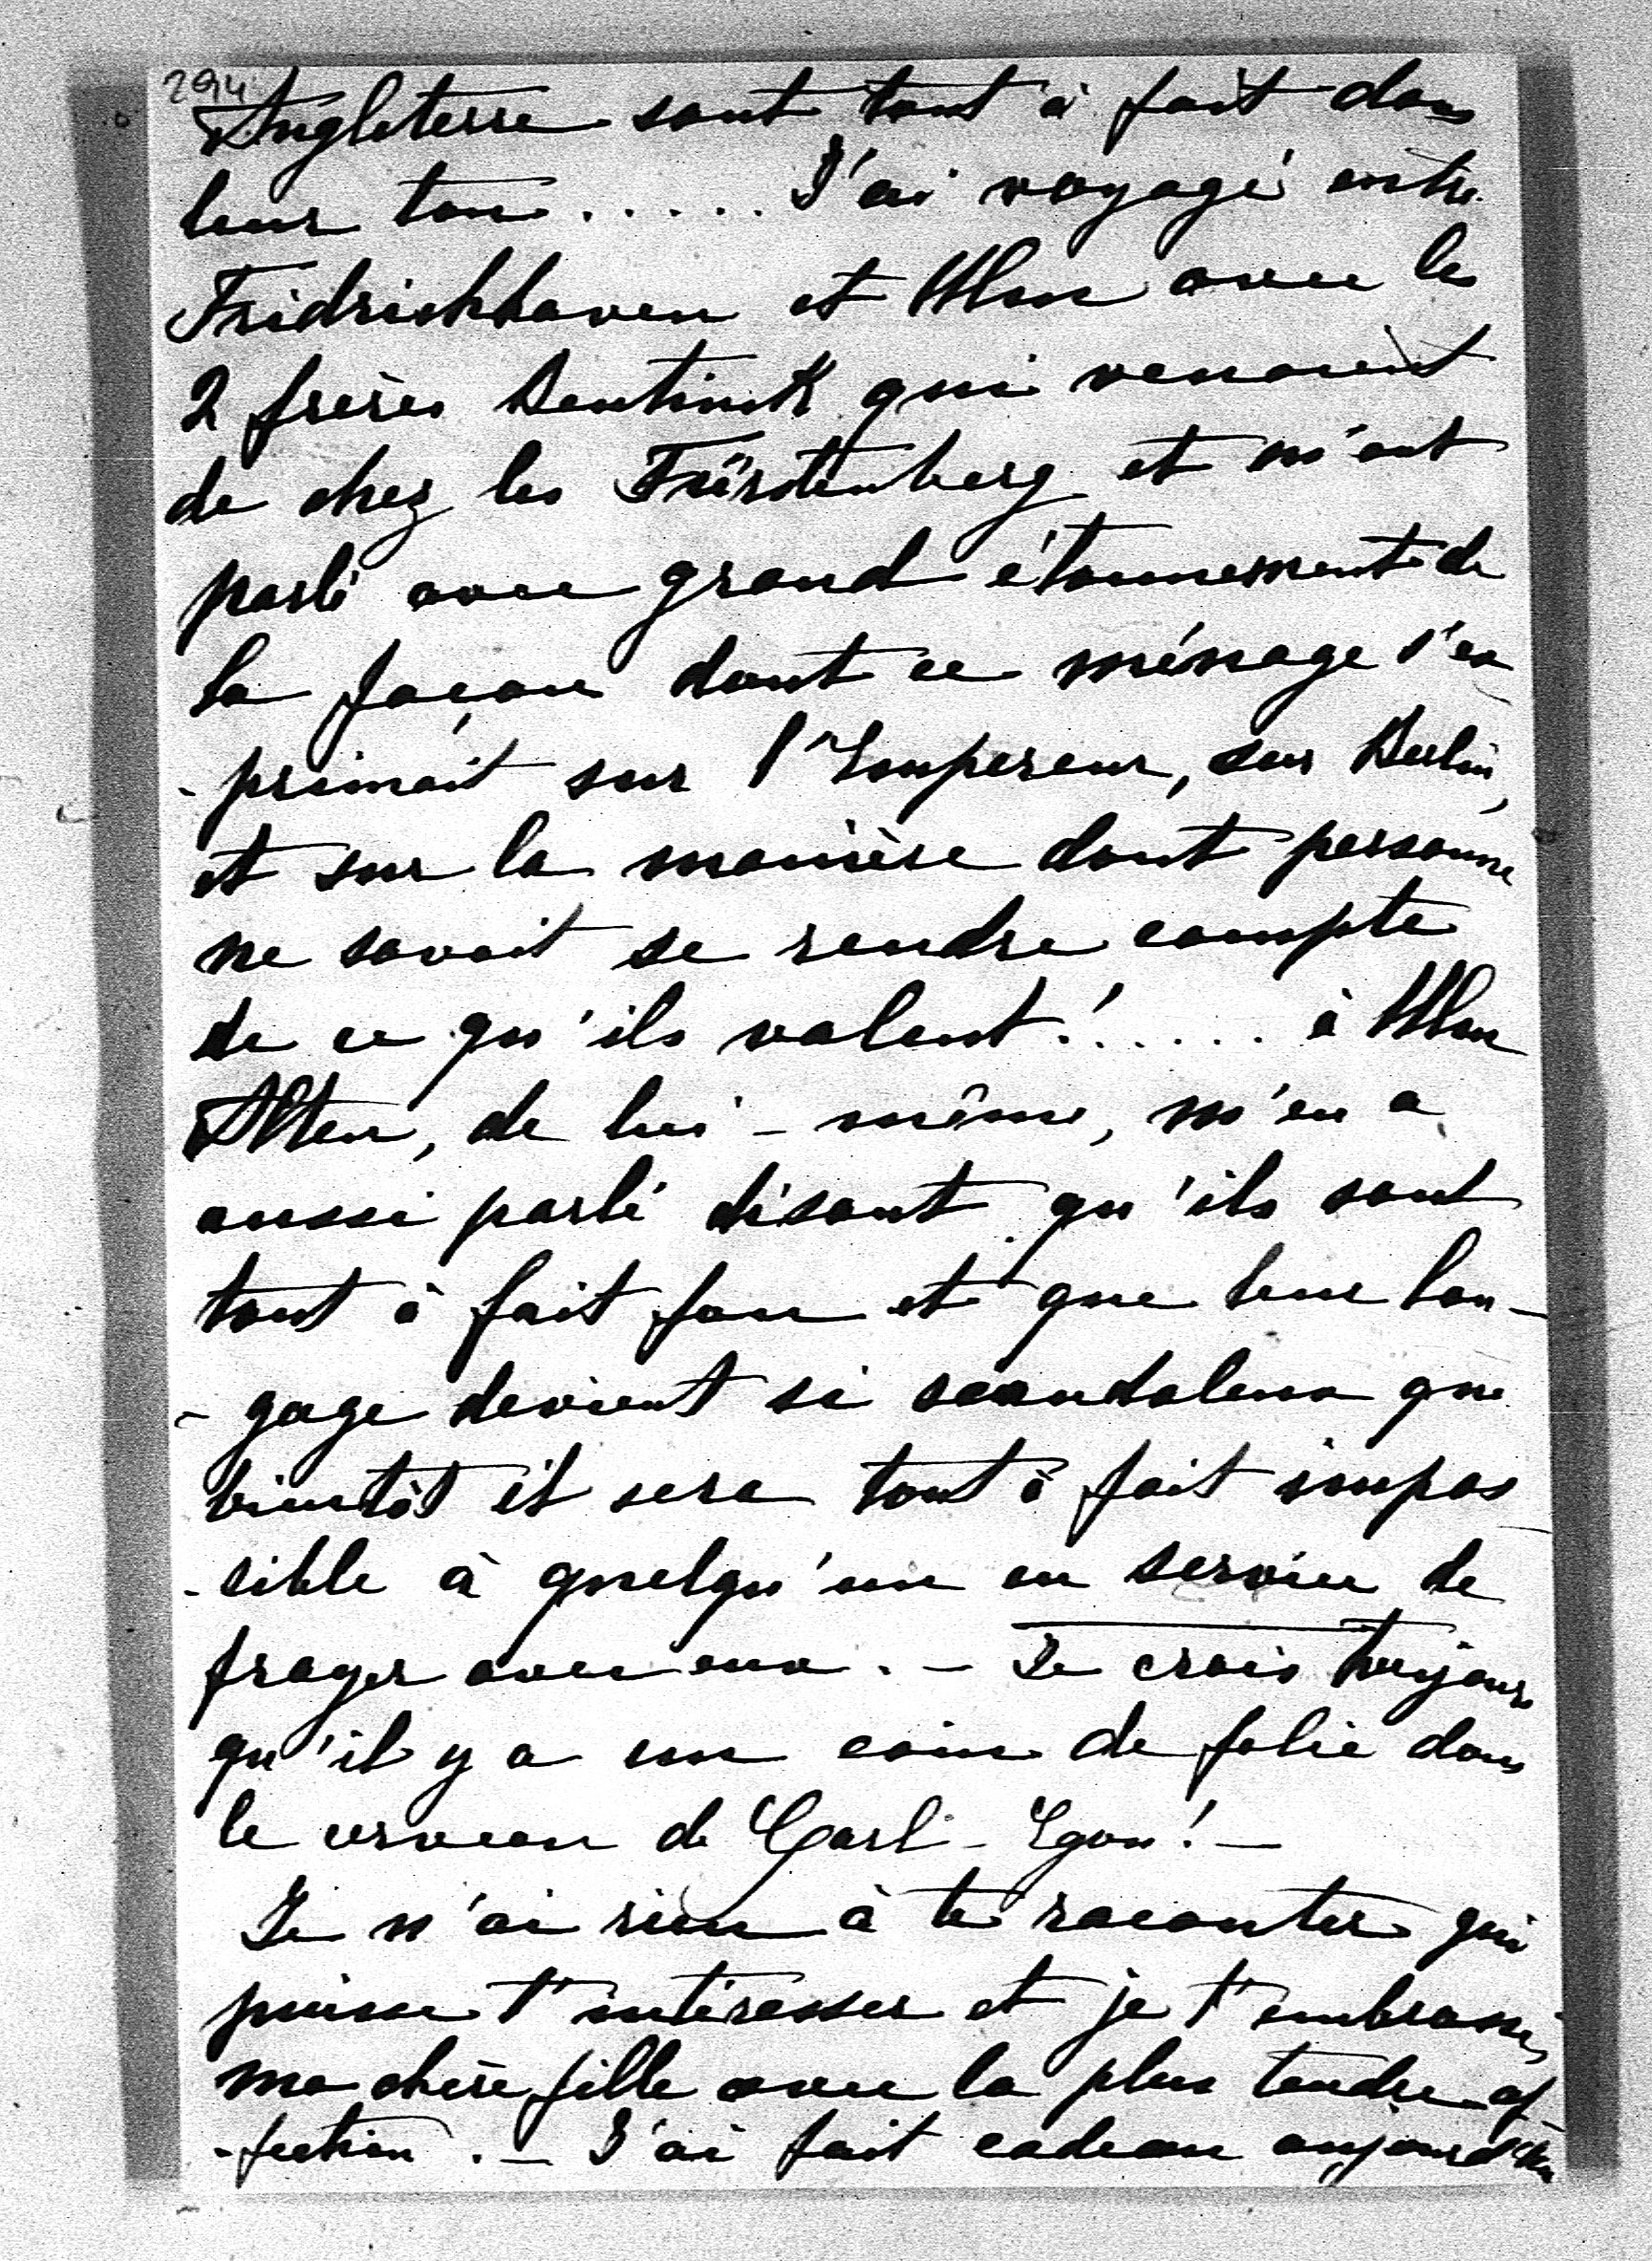 294
Angleterre sont tout à fait dans
leur ton..... J'ai voyagé entre
Fridrichhaven et Ulm avec les
2 frères Bentinck qui venaient
de chez les Fürstenberg et m'ont
parlé avec grand étonnement de
la façon dont ce ménage s'ex
-primait sur l'Empereur, sur Berlin,
et sur la manière dont personne
ne savait se rendre compte
de ce qu'ils valent!..... à Ulm
Alten, de lui-même, m'en a
aussi parlé disant qu'ils sont
tout à fait fou et que leur lan-
-gage devient si scandaleux que
bientôt il sera tout à fait impos
-sible à quelqu'un en service de
frayer avec eux. — Je crois toujours
qu'il y a un coin de folie dans
le cerveau de Carl-Egon! —
Je n'ai rien à te raconter qui
puisse t'intéresser et je t'embrasse,
ma chère fille avec la plus tendre af
-fection. — J'ai fait cadeau aujourd'hui